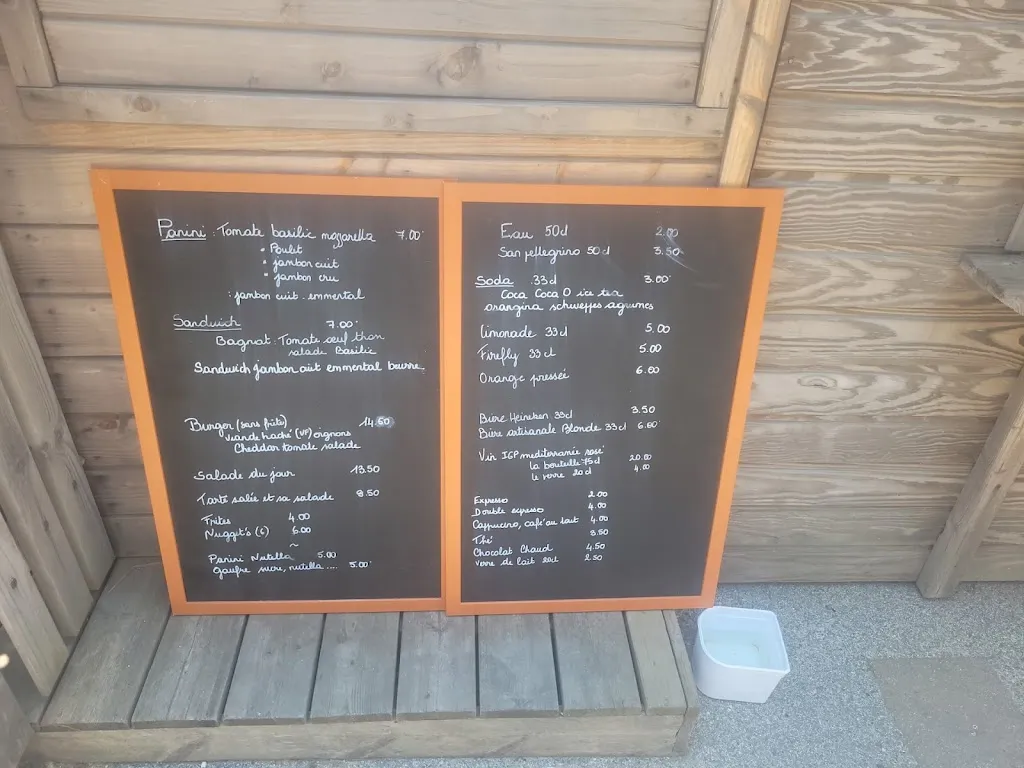 Panini : Tomate basilic mozzarella 7.00
" Poulet
" jambon cuit
" jambon cru
: jambon cuit . emmental
Sandwich 7.00
Bagnat : Tomate oeuf thon
salade Basilic
Sandwich jambon cuit emmental beurre
Burger (sans frites) 14.50
viande haché (VF) oignons
Cheddar tomate salade
Salade du jour 13.50
Tarte salée et sa salade 9.50
Frites 4.00
Nugget's (6) 6.00
~
Panini Nutella 5.00
gaufre sucre, nutella .... 5.00
Eau 50cl 2.00
San pellegrino 50cl 3.50
Soda 33cl 3.00
Coca Coca O ice tea
orangina schweppes agrumes
Limonade 33cl 5.00
Firefly 33cl 5.00
Orange pressée 6.00
Bière Heineken 33cl 3.50
Bière artisanale Blonde 33cl 6.00
Vin IGP mediterranée rosé
la bouteille 75cl 20.00
le verre 20cl 4.00
Expresso 2.00
Double expresso 4.00
Cappucino, café au lait 4.00
Thé 3.50
Chocolat Chaud 4.50
Verre de lait 20cl 2.50